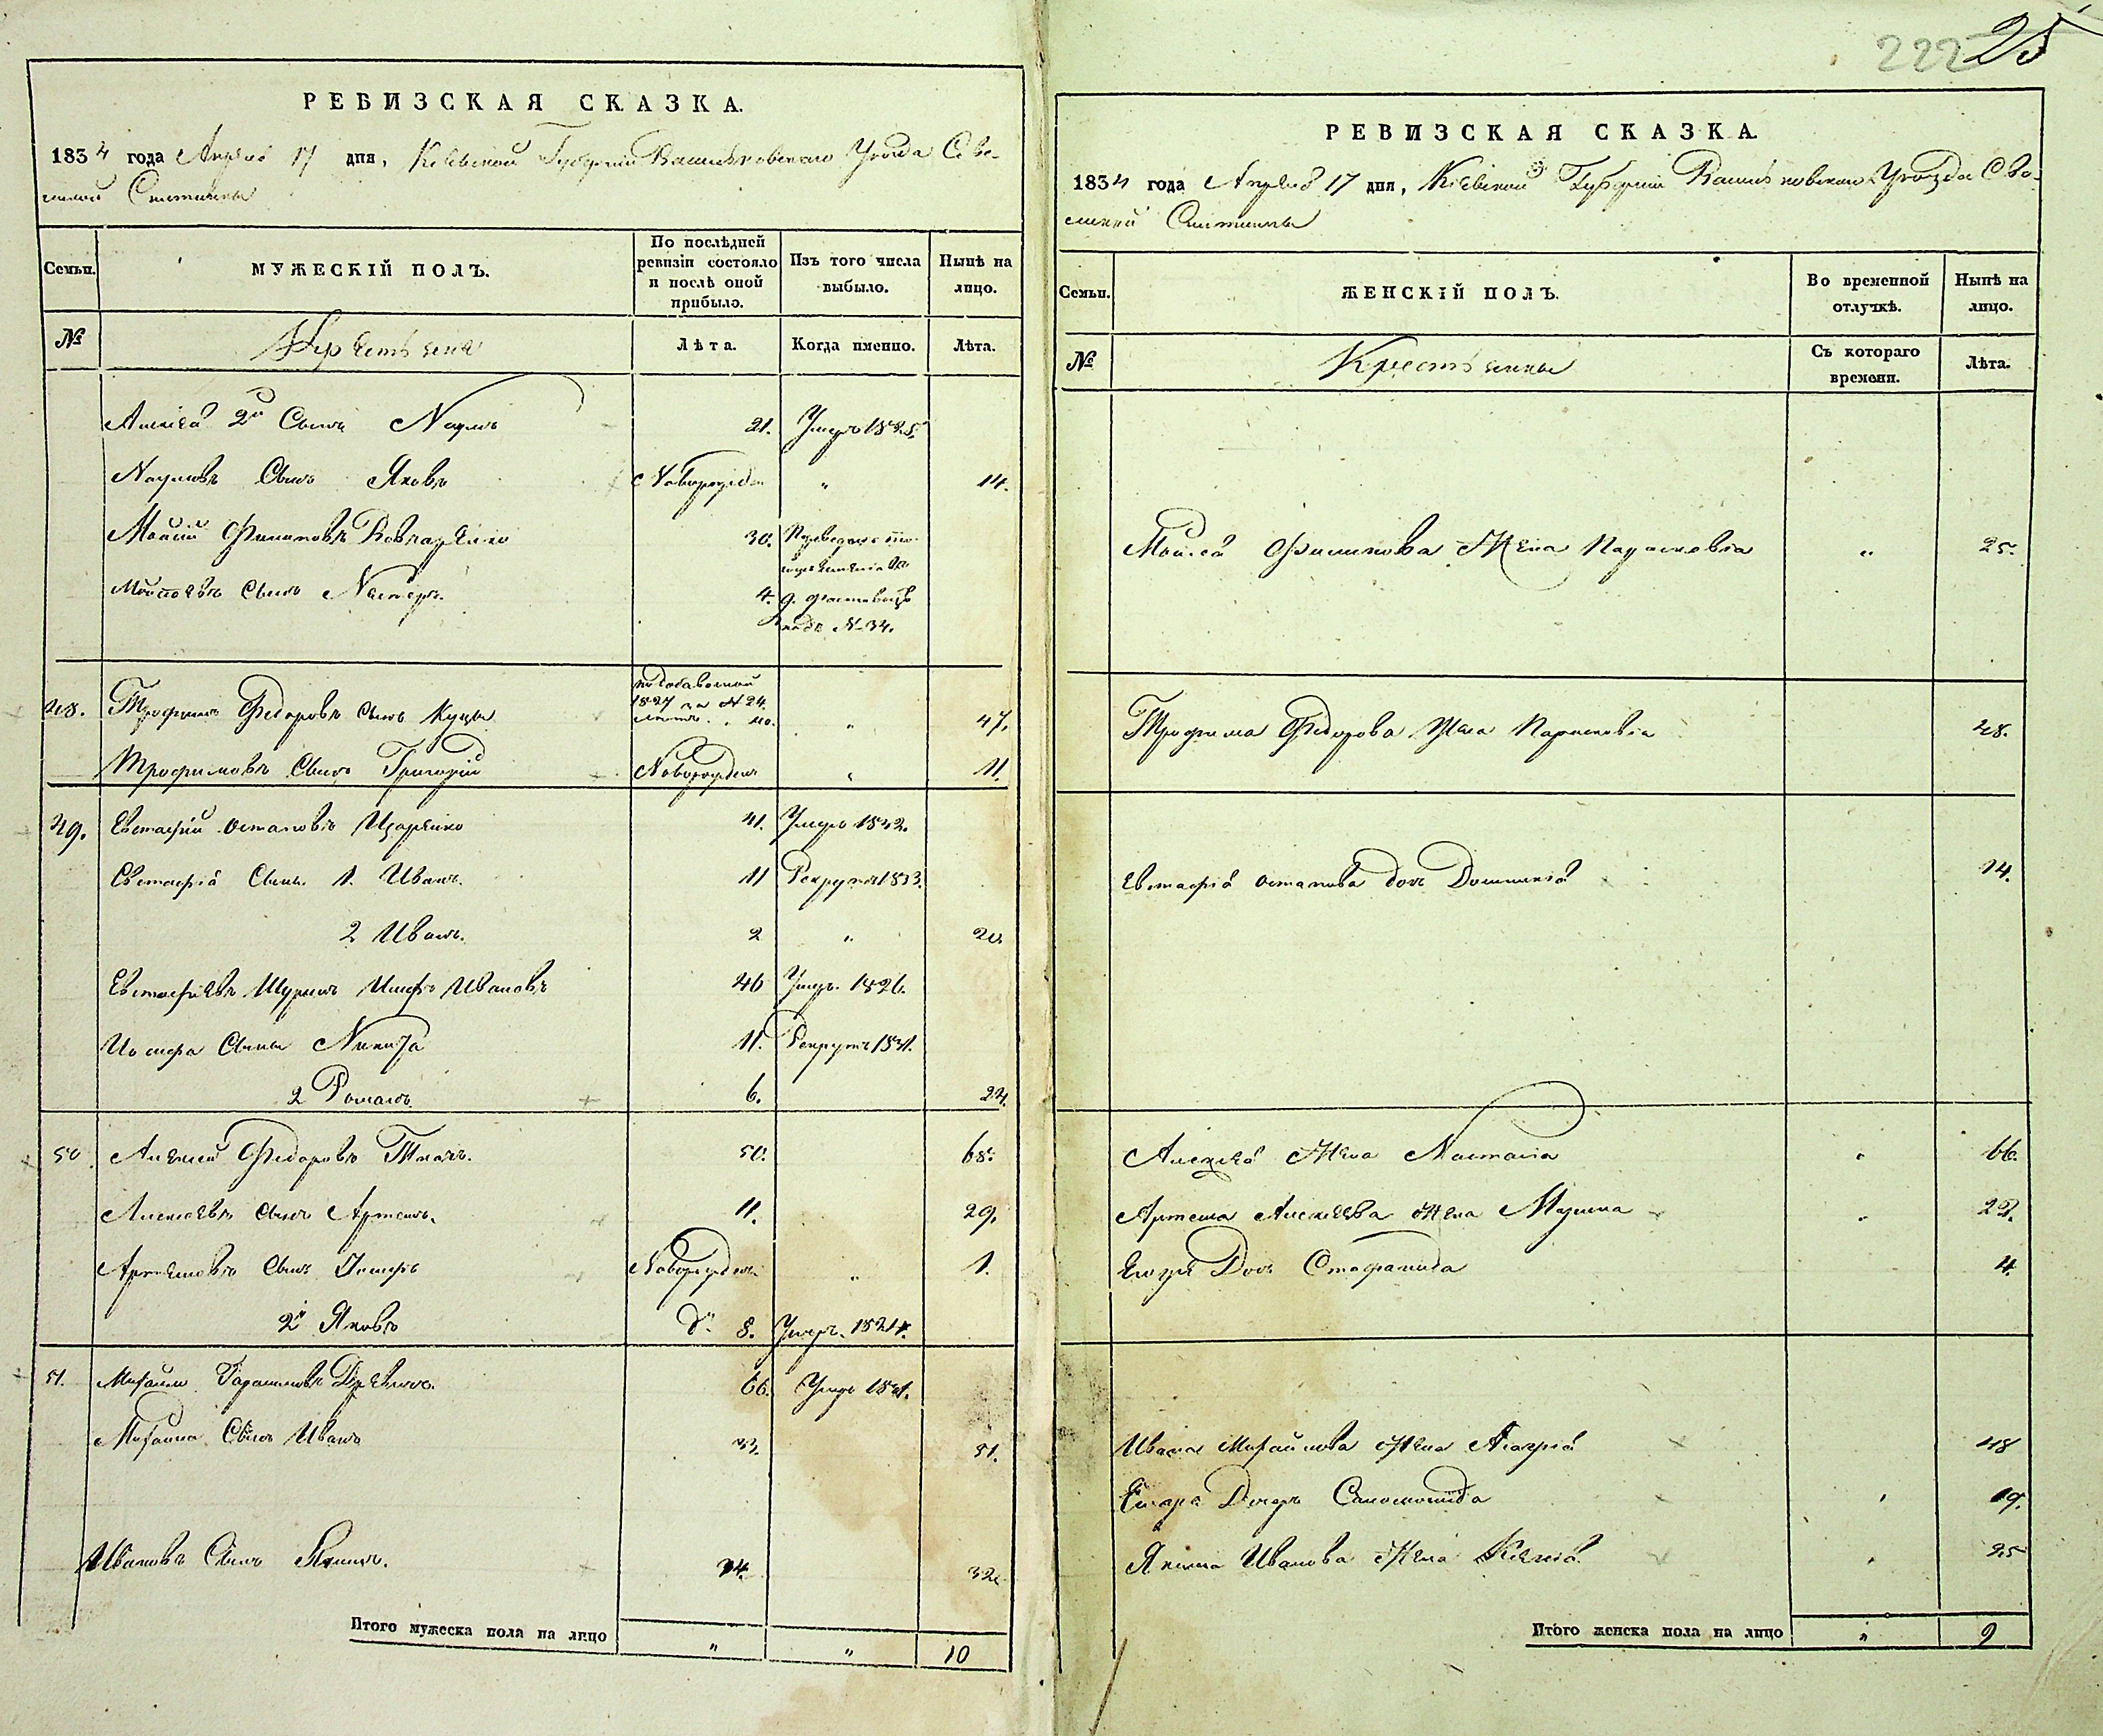 222 25
РЕВИЗСКАЯ СКАЗКА.
1834 года Апреля 17 дня, Кіевской Губерніи Васильковскаго Уезда
Семьи.
МУЖЕСКІЙ ПОЛЪ.
По послѣдней ревизіи состояло и послѣ оной прибыло.
Изъ того числа выбыло.
Нынѣ на лицо.
№
Крестьяне
Лѣта.
Когда именно.
Лѣта.
Алексея 2й Сынъ Наумъ 21. Умеръ 1825.
Наумовъ Сынъ Яковъ Новорожден „ 14.
Мойсей Филиповъ 30.
Мойсеевъ Сынъ Нестеръ. 4.
подъ № 34.
48. Трофимъ Федоровъ Сынъ Куцы по добавочной 1827 за № 24. 40. „ 47.
Трофимовъ Сынъ Григорій Новорожден „ 11.
49. Евстафій Остаповъ 41. Умеръ 1832.
Евстафія Сынъ 1. Иванъ. 11 Рекрутъ 1833.
2 Иванъ. 2 „ 20.
Евстафіевъ Шуринъ Иосифъ Ивановъ 46 Умеръ. 1826.
Иосифа Сыны Никита 11. Рекрутъ 1831.
2 Романъ. 6. 24.
50. Алексей Федоровъ Ткачъ. 50. 68.
Алексеевъ Сынъ Артемъ. 11. 29.
Артемовъ Сынъ Петръ Новорожден „ 1.
2й Яковъ до. 8. Умеръ. 1824.
51. Михайло Гарасимовъ 66. Умеръ 1821.
Михайла Сынъ Иванъ 33. 51.
Ивановъ Сынъ Якимъ. 14. 32.
Итого мужеска пола на лицо „ „ 10
РЕВИЗСКАЯ СКАЗКА.
1834 года Апреля 17 дня, Кіевской Губерніи Васильковскаго Уезда
Семьи.
ЖЕНСКІЙ ПОЛЪ.
Во временной отлучкѣ.
Нынѣ на лицо.
№
Крестьянки
Съ котораго времени.
Лѣта.
Мойсея Филипова Жена Парасковія „ 25.
Трофима Федорова Жена Парасковія 48.
Евстафія Остапова дочь Домникія 14.
Алексея Жена Настасія „ 66.
Артема Алексеева Жена Марина „ 22.
Егоже Дочь Стефанида 4.
Ивана Михайлова Жена Агафія 48
Егоже Дочерь Соломонида „ 19.
Якима Иванова Жена Ксенія „ 25
Итого женска пола на лицо „ 9